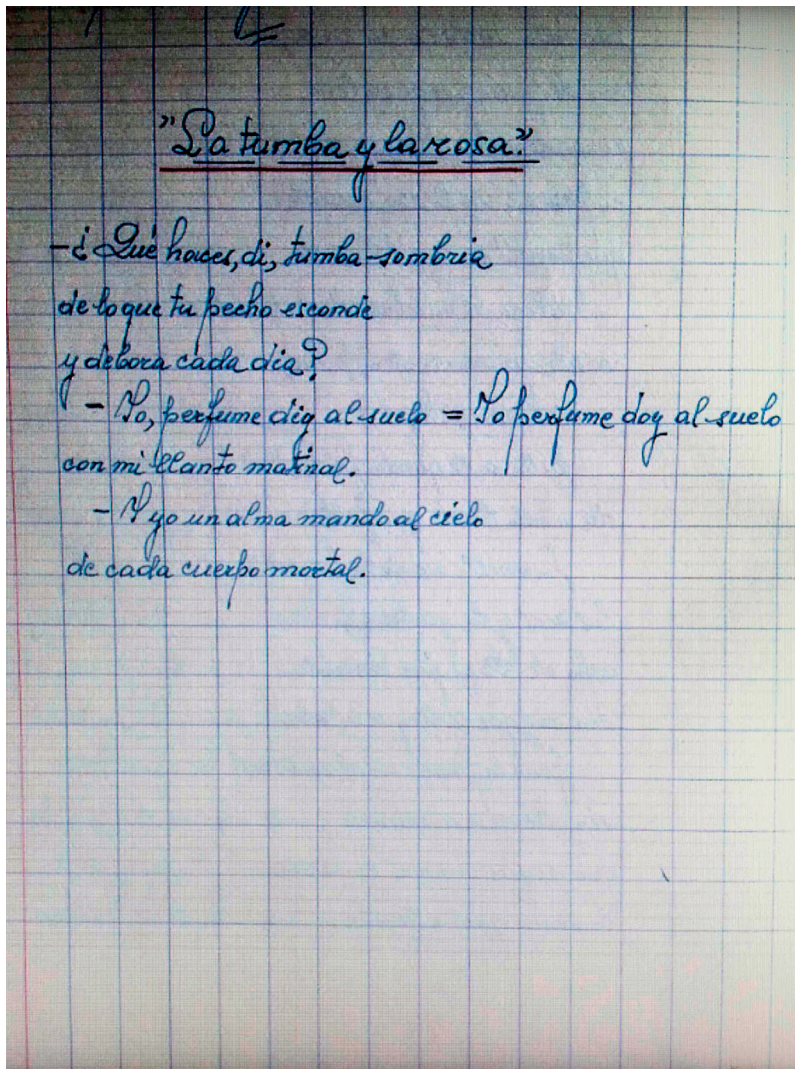 "La tumba y la rosa."
-¿Qué haces, di, tumba sombría
de lo que tu pecho esconde
y debora cada día?
- Yo, perfume diy al suelo = Yo perfume doy al suelo
con mi llanto matinal.
- Y yo un alma mando al cielo
de cada cuerpo mortal.